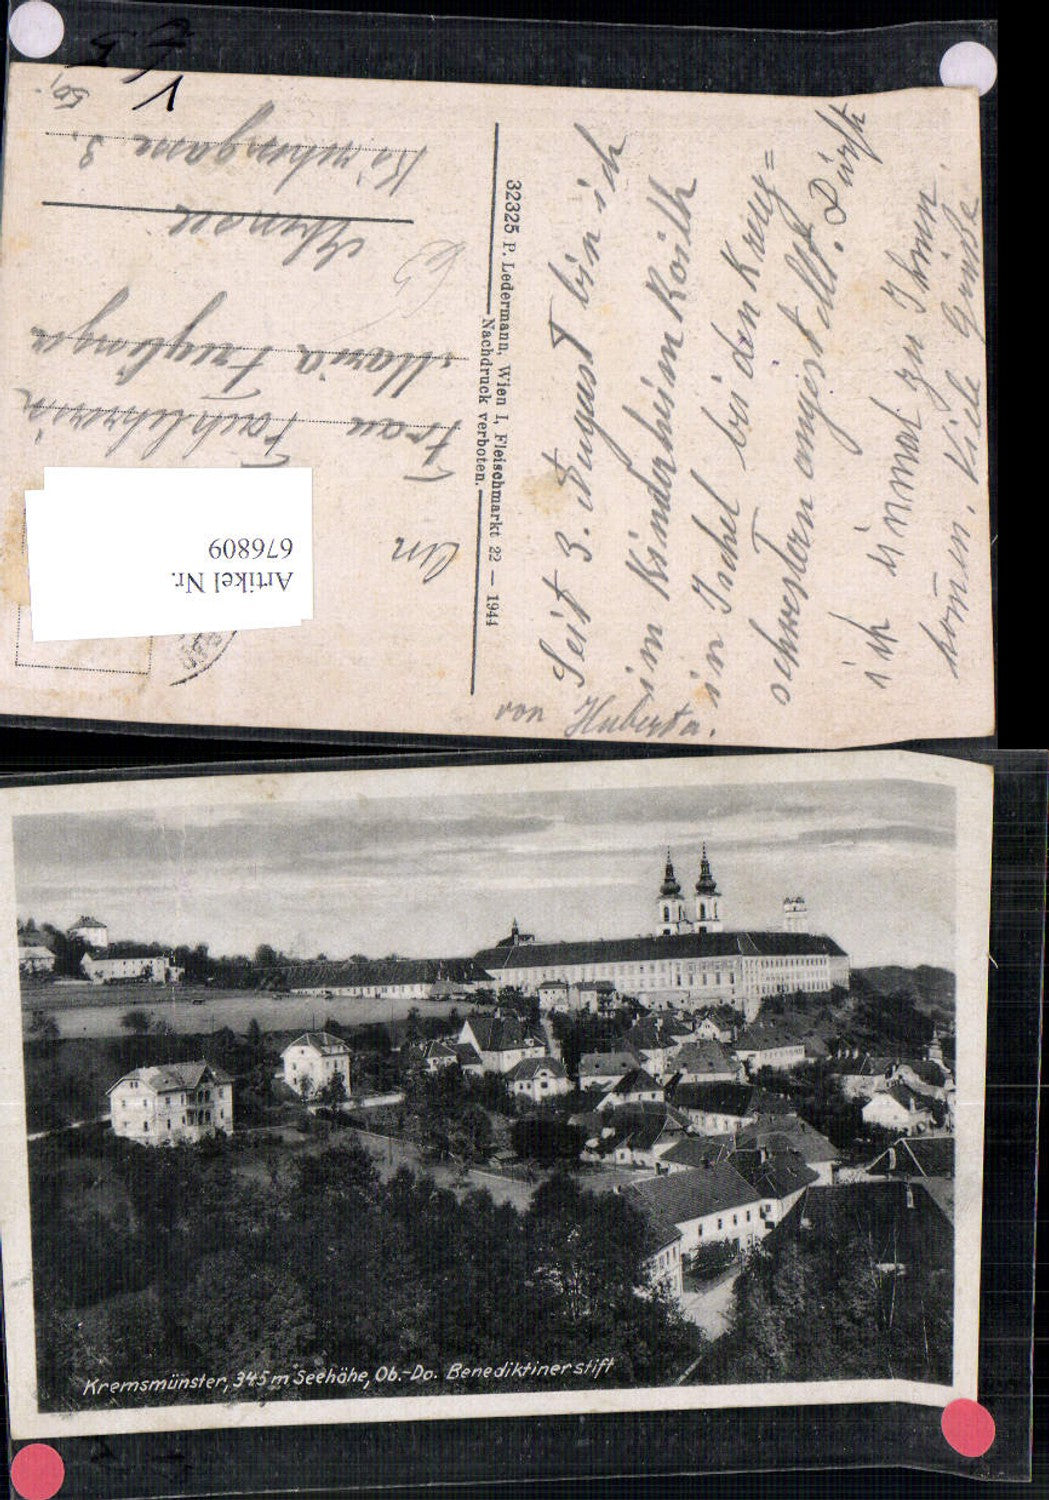 Seit 3. August bin ich
im Kinderheim Roith
in Ischl bei den Kreuz=
schwestern angestellt. Dürft
ich einmal zu Ihnen
kommen. Viele Grüße.
von Huberta.
32325 P. Ledermann, Wien I, Fleischmarkt 22 — 1944
Nachdruck verboten.
An
Frau Fachlehrerin
Maria
3.
Artikel Nr.
676809
Kremsmünster, 345 m Seehöhe, Ob.-Do. Benediktinerstift